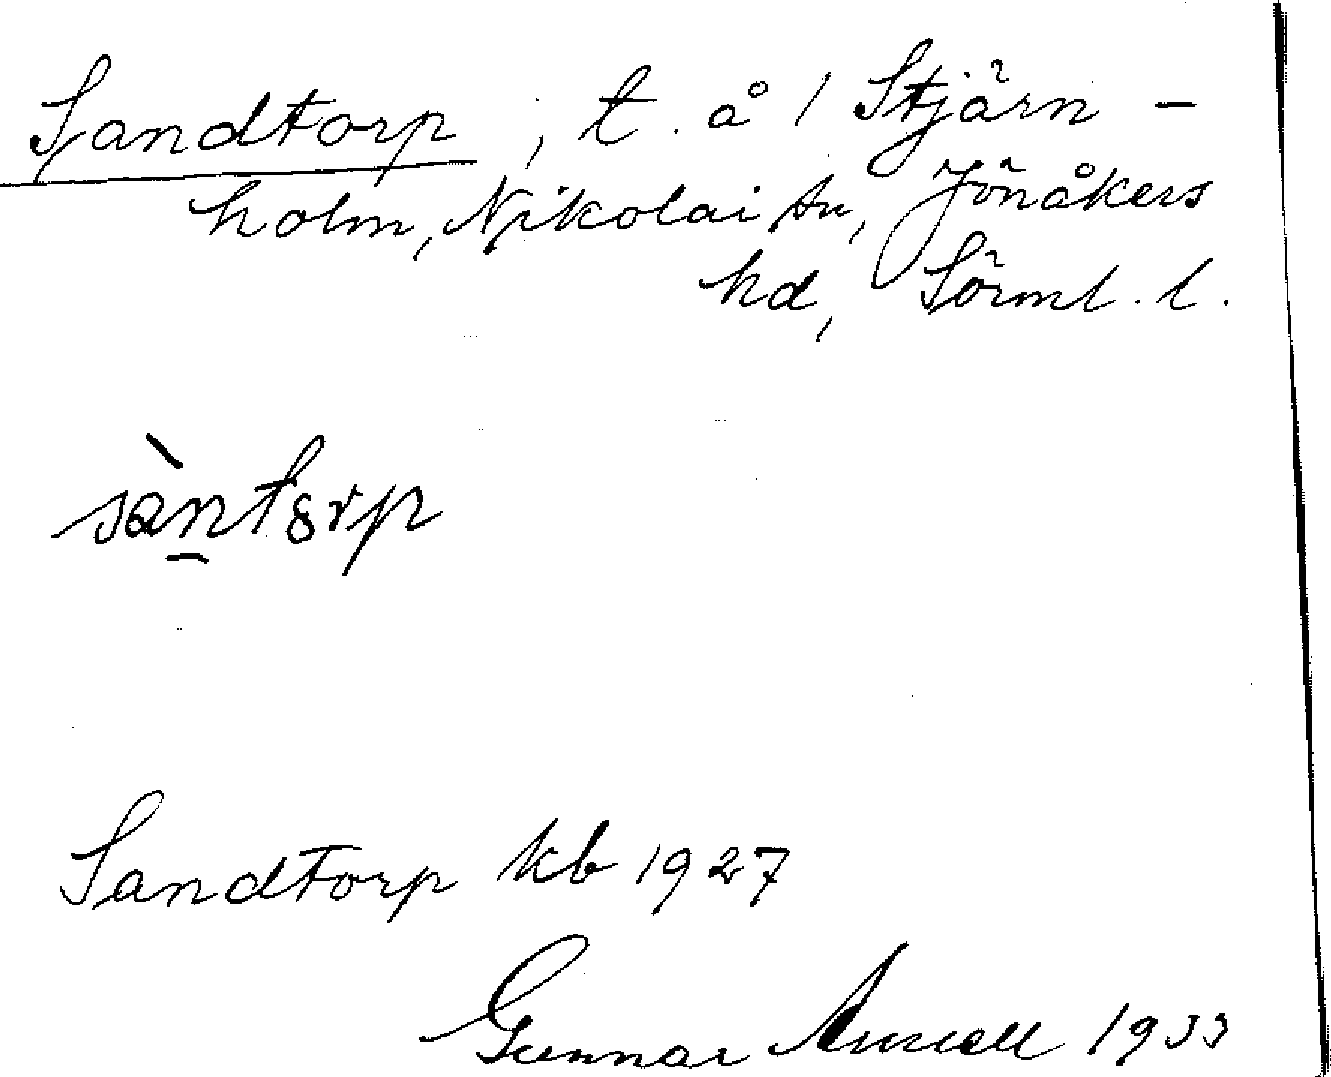 Sandtorp, t. å / Stjärn-
holm, Nikolai sn, Jönåkers
hd, Sörml. l.
sàntorp
Sandtorp kb 1927
Gunnar 1933